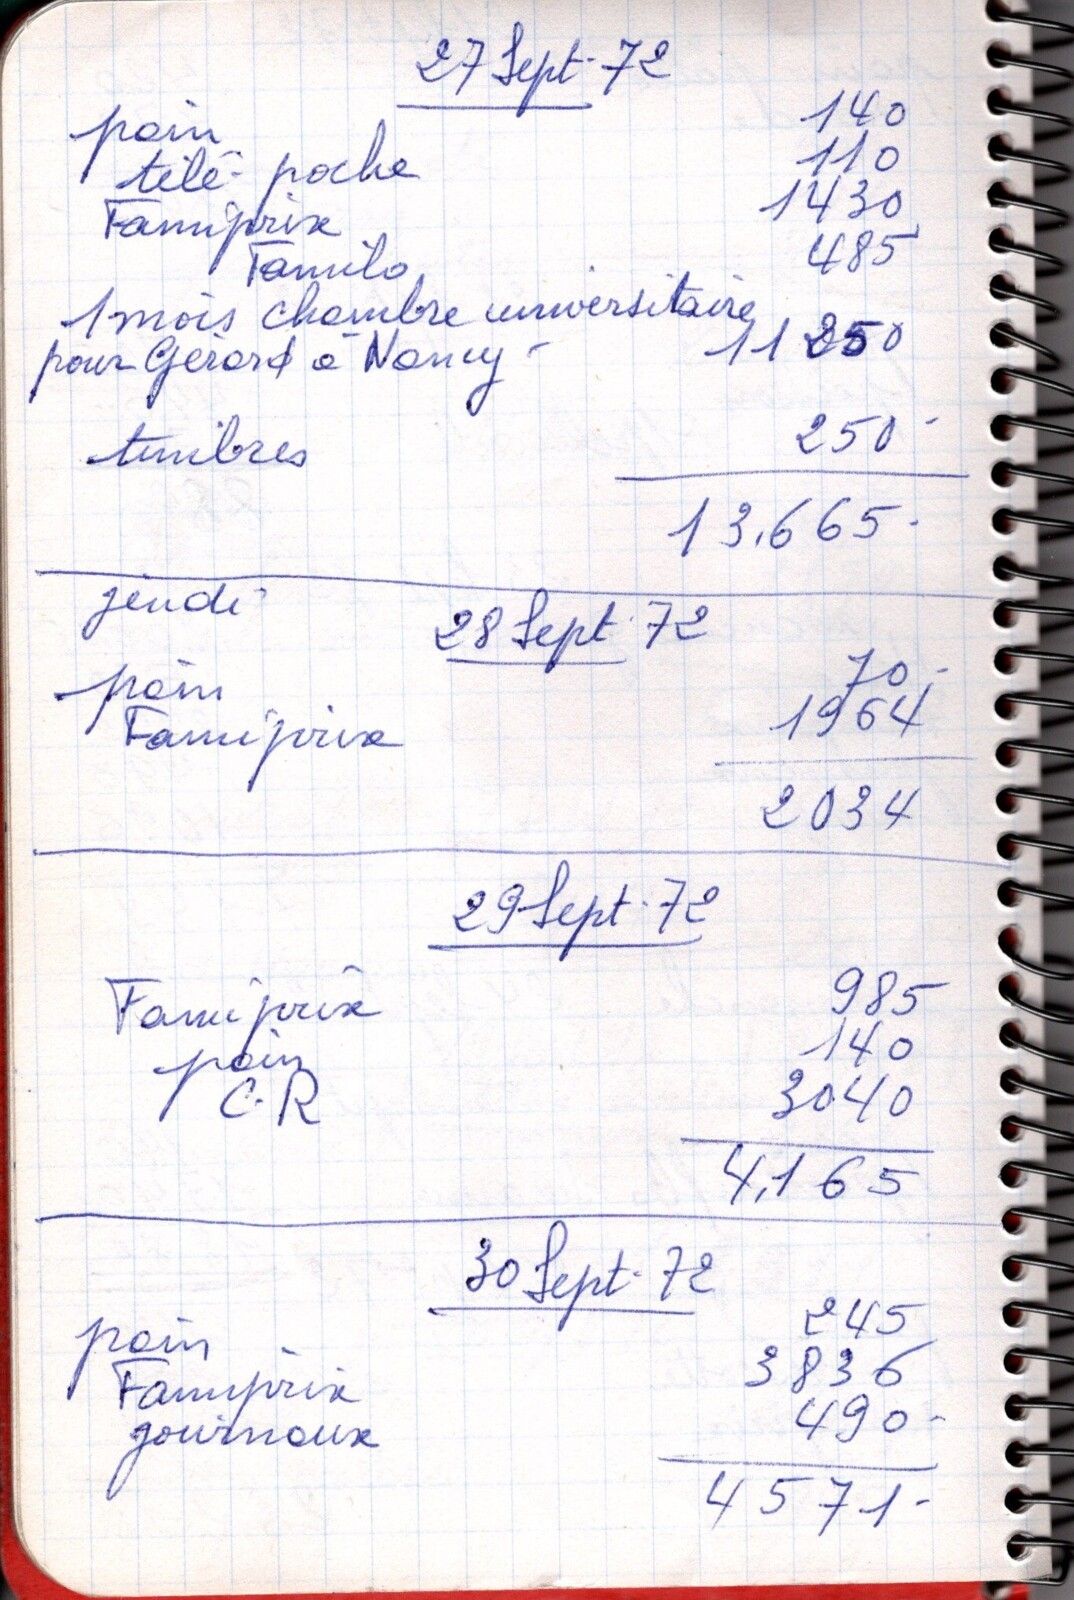 27 Sept. 72
pain 140
télé-poche 110
Famiprix 1430
Familo 485
1 mois chambre universitaire
pour Gérard à Nancy - 11250
timbres 250-
13.665-
jeudi 28 Sept. 72
pain 70-
Famiprix 1964
2034
29 Sept. 72
Famiprix 985
pain 140
C.R 3040
4.165
30 Sept. 72
pain 245
Famiprix 3836
journaux 490-
4571-